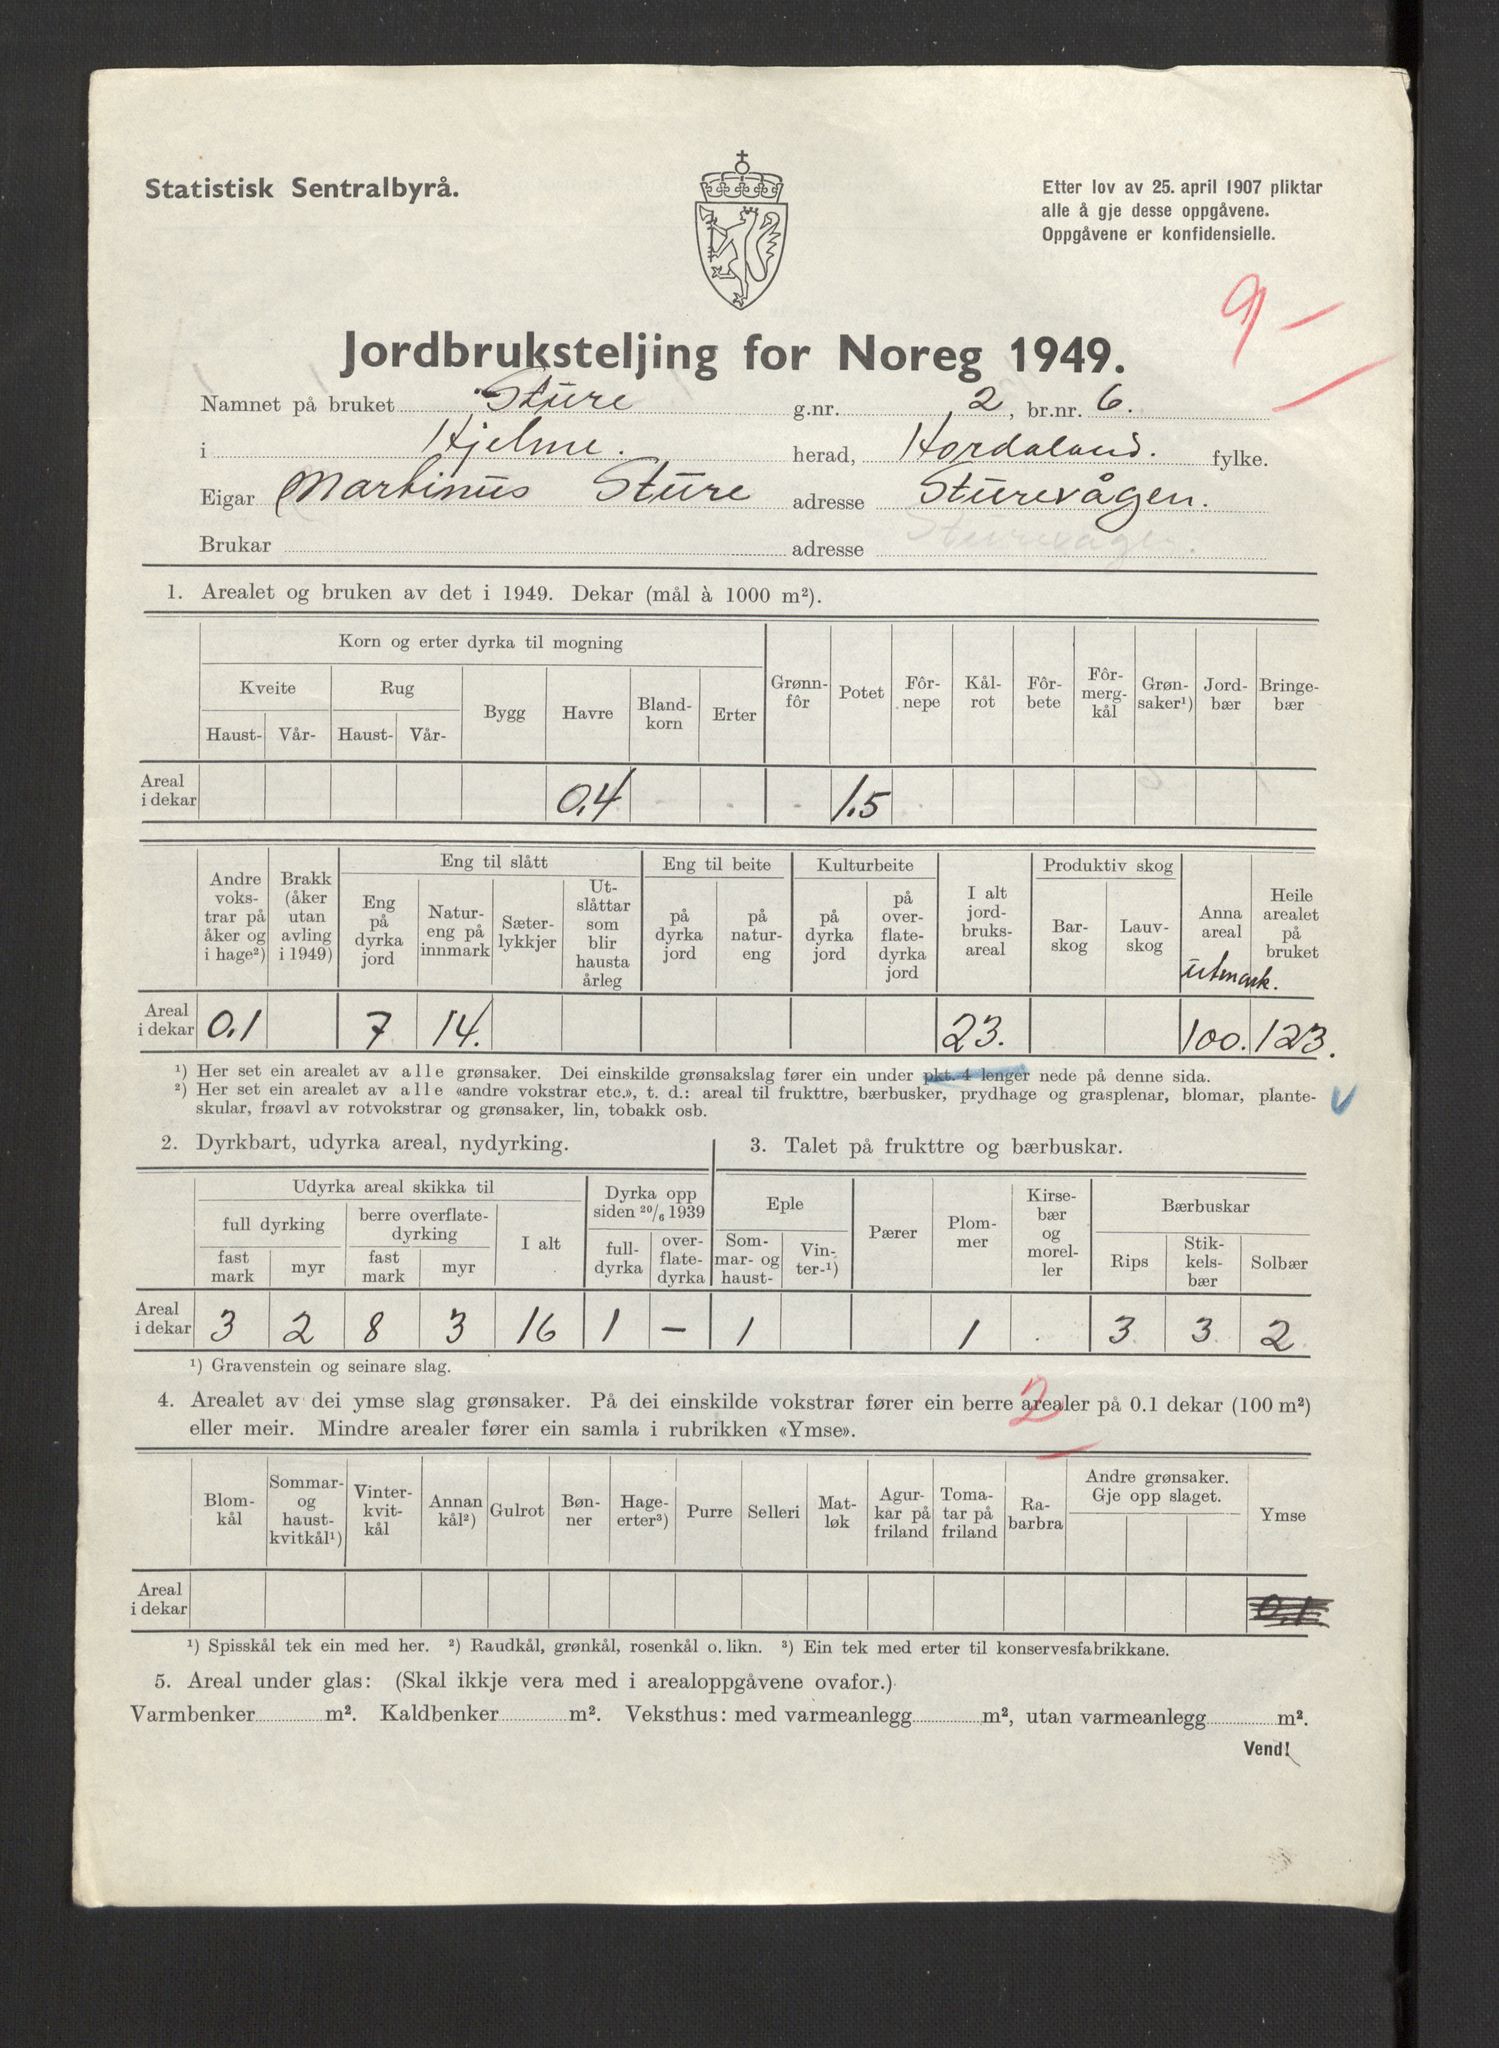 Statistisk Sentralbyrå.
Etter lov av 25. april 1907 pliktar
alle å gje desse oppgåvene.
Oppgåvene er konfidensielle.
9
Jordbruksteljing for Noreg 1949.
Namnet på bruket Sture g.nr. 2, br.nr. 6.
i Hjelme. herad, Hordaland. fylke.
Eigar Martinus Sture adresse Sturevågen.
Brukar adresse Sturevågen.
1. Arealet og bruken av det i 1949. Dekar (mål à 1000 m²).
Korn og erter dyrka til mogning
Kveite Rug Bygg Havre Bland-korn Erter Grønn-fôr Potet Fôr-nepe Kål-rot Fôr-bete Fôr-merg-kål Grøn-saker¹) Jord-bær Bringe-bær
Haust- Vår- Haust- Vår-
Areal i dekar 0,4 1,5
Eng til slått Eng til beite Kulturbeite Produktiv skog
Andre voks-trar på åker og i hage²) Brakk (åker utan avling i 1949) Eng på dyrka jord Natur-eng på innmark Sæter-lykkjer Ut-slåttar som blir hausta årleg på dyrka jord på natur-eng på dyrka jord på over-flate-dyrka jord I alt jord-bruks-areal Bar-skog Lauv-skog Anna areal utmark. Heile arealet på bruket
Areal i dekar 0,1 7 14. 23. 100. 123.
¹) Her set ein arealet av alle grønsaker. Dei einskilde grønsakslag fører ein under pkt. 4 lenger nede på denne sida.
²) Her set ein arealet av alle «andre vokstrar etc.», t. d.: areal til frukttre, bærbusker, prydhage og grasplenar, blomar, plante-
skular, frøavl av rotvokstrar og grønsaker, lin, tobakk osb.
2. Dyrkbart, udyrka areal, nydyrking.
3. Talet på frukttre og bærbuskar.
Udyrka areal skikka til Dyrka opp siden 20/6 1939 Eple Pærer Plom-mer Kirse-bær og morel-ler Bærbuskar
full dyrking berre overflate-dyrking I alt full-dyrka over-flate-dyrka Som-mar- og haust- Vin-ter-¹) Rips Stik-kels-bær Solbær
fast mark myr fast mark myr
Areal i dekar 3 2 8 3 16 1 — 1 1 3 3 2
¹) Gravenstein og seinare slag.
2
4. Arealet av dei ymse slag grønsaker. På dei einskilde vokstrar fører ein berre arealer på 0.1 dekar (100 m²)
eller meir. Mindre arealer fører ein samla i rubrikken «Ymse».
Blom-kål Sommar- og haust-kvitkål¹) Vinter-kvit-kål Annan kål²) Gulrot Bøn-ner Hage-erter³) Purre Selleri Mat-løk Agur-kar på friland Toma-tar på friland Ra-barbra Andre grønsaker. Gje opp slaget. Ymse
Areal i dekar 0,1
¹) Spisskål tek ein med her. ²) Raudkål, grønkål, rosenkål o. likn. ³) Ein tek med erter til konservesfabrikkane.
5. Areal under glas: (Skal ikkje vera med i arealoppgåvene ovafor.)
Varmbenker m². Kaldbenker m². Veksthus: med varmeanlegg m², utan varmeanlegg m².
Vend!